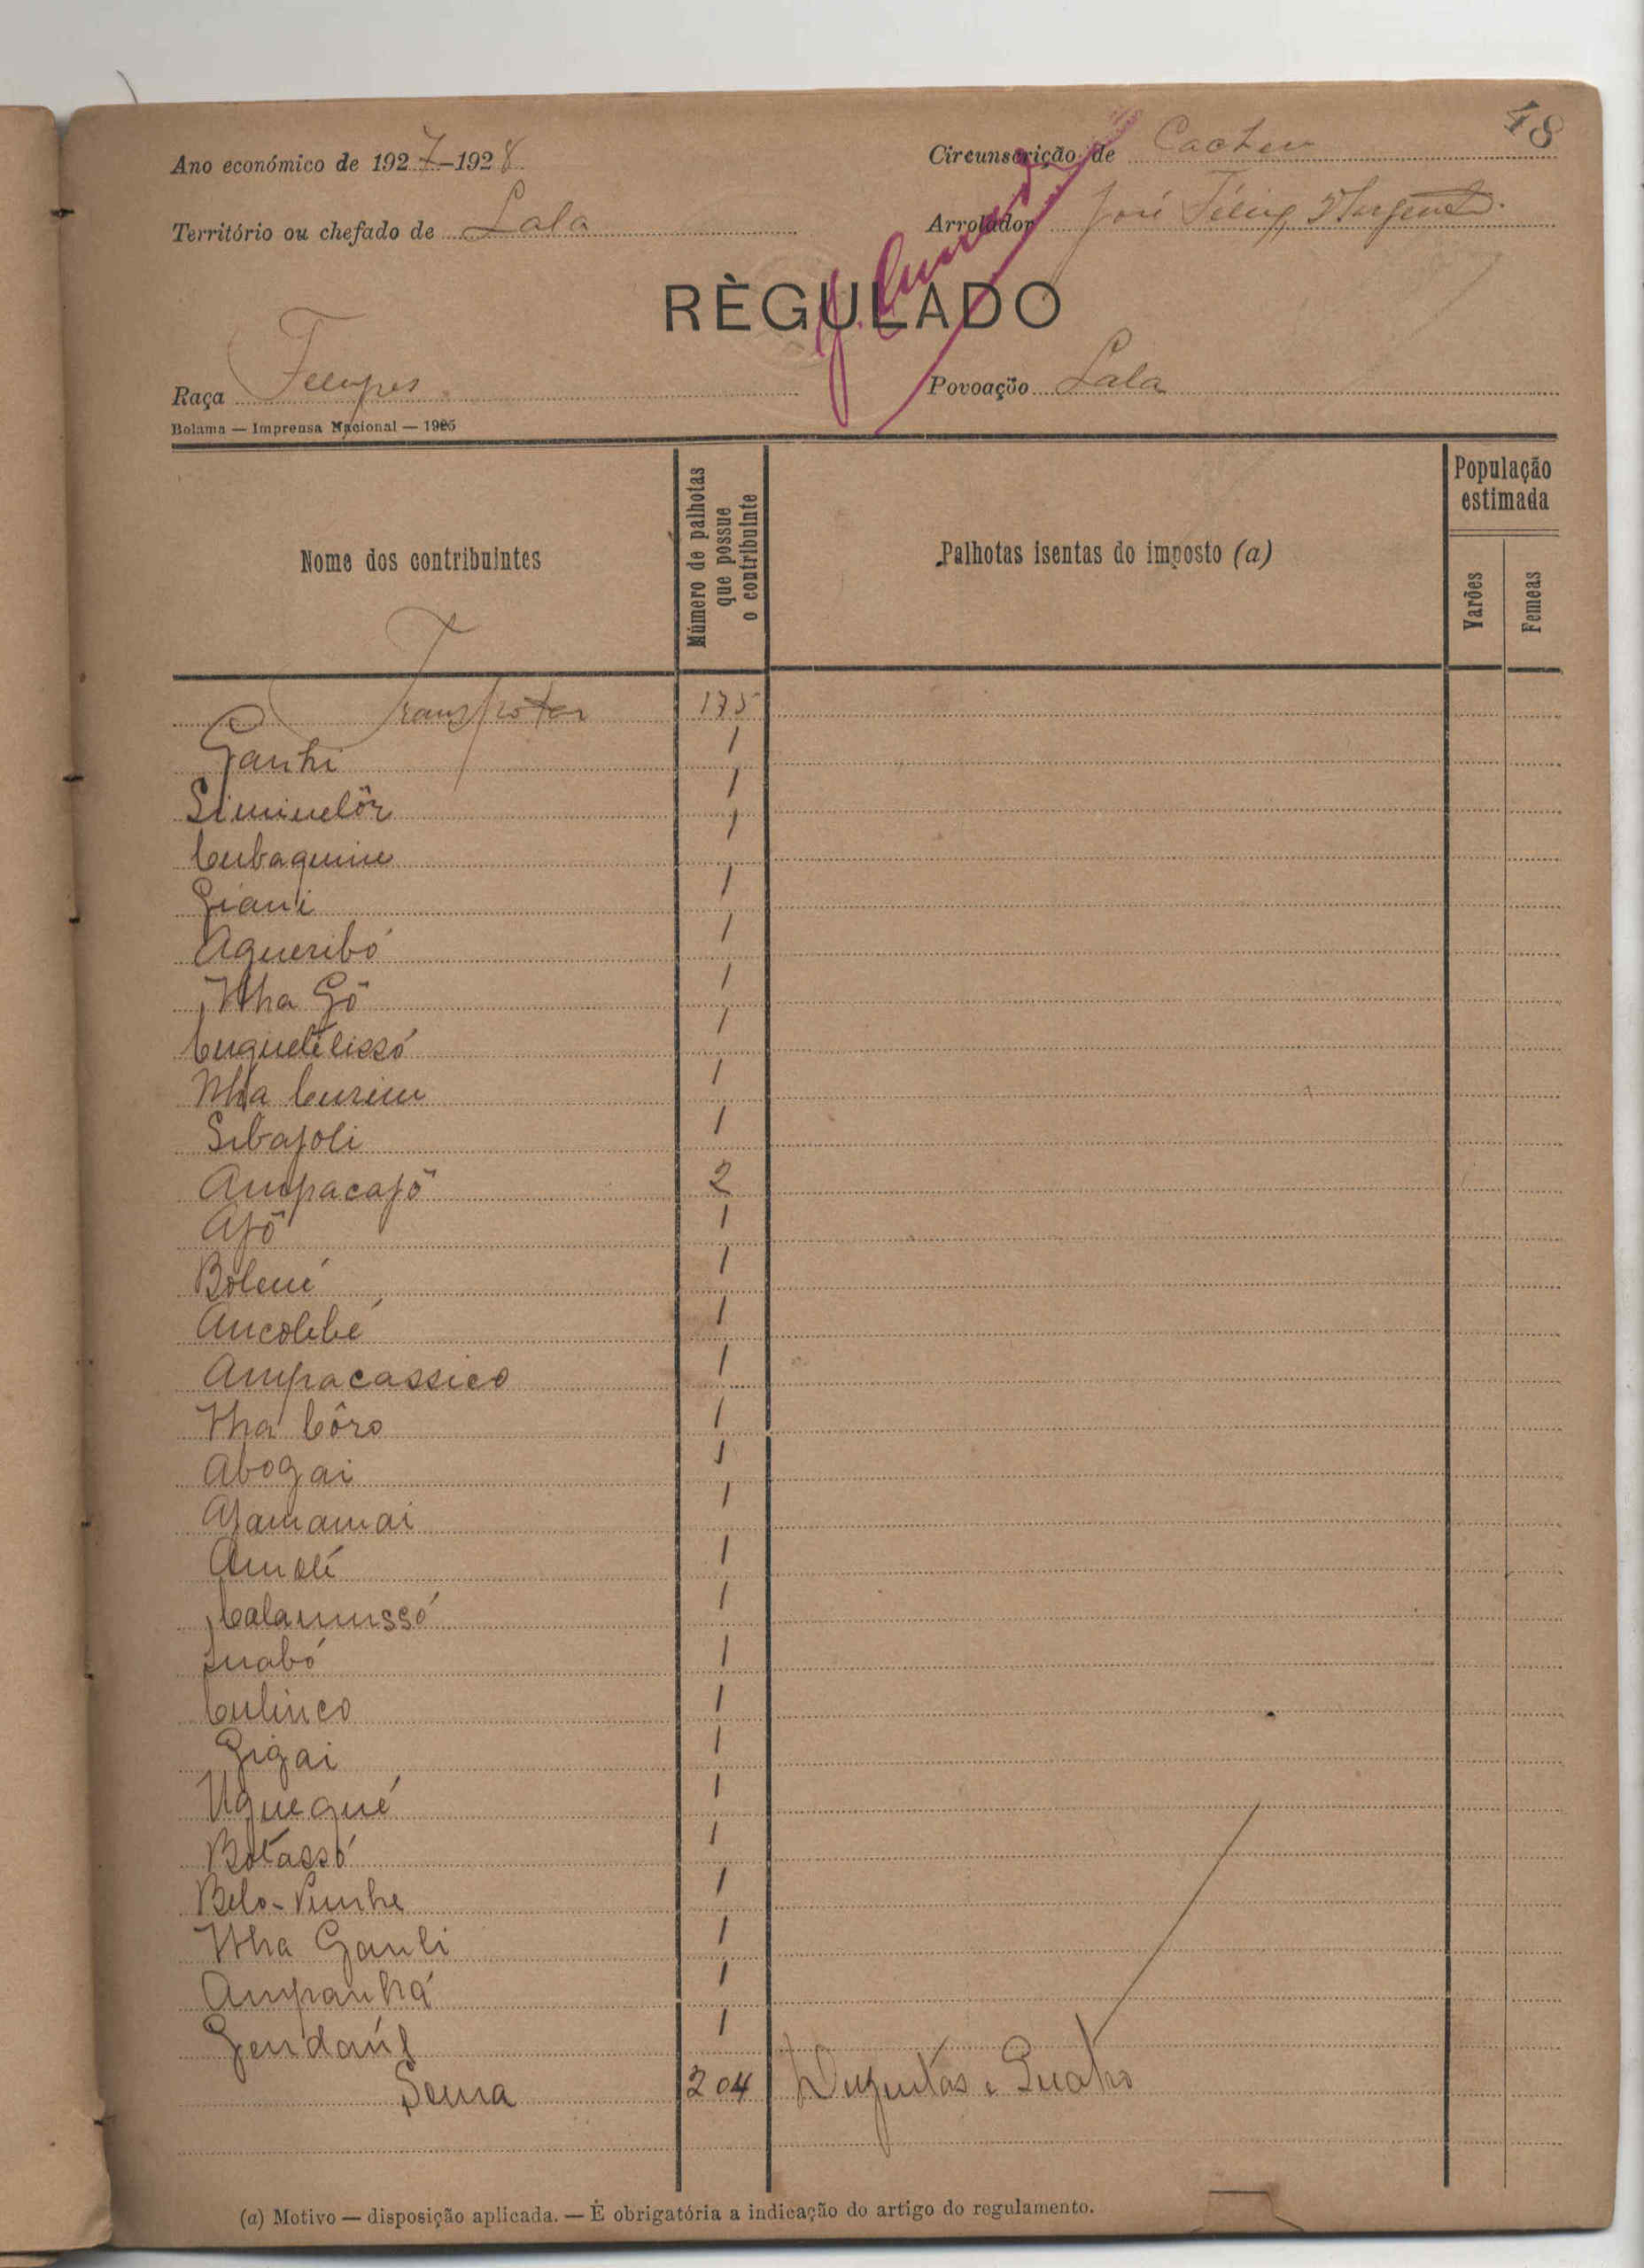 48
Ano económico de 1927-1928 Circunscrição de Cacheu
Território ou chefado de Lala Arrolador José Felix 2º Sargento
RÈGULADO
Raça Felupes Povoação Lala
Bolama — Imprensa Nacional — 1925
Nome dos contribuintes Número de palhotas que possue o contribuinte Palhotas isentas do imposto (a) População estimada
Varões Femeas
Transporte 175
Ganhi 1
Siminelôr 1
Cubaquine 1
Giani 1
Agueribó 1
Nha Gô 1
Cuguetelissó 1
Nha Curiu 1
Sibajoli 1
Ampacajô 2
Ajô 1
Bolené 1
Ancolebé 1
Ampacassico 1
Nha Côro 1
Abogai 1
Ajamamai 1
Amolé 1
Calamussó 1
Juabó 1
Culinco 1
Gigai 1
Uguegué 1
Botassó 1
Belo-Punhe 1
Nha Ganli 1
Ampanhá 1
Gendaúl 1
Soma 204 Duzentas e Quatro
(a) Motivo — disposição aplicada. — É obrigatória a indicação do artigo do regulamento.